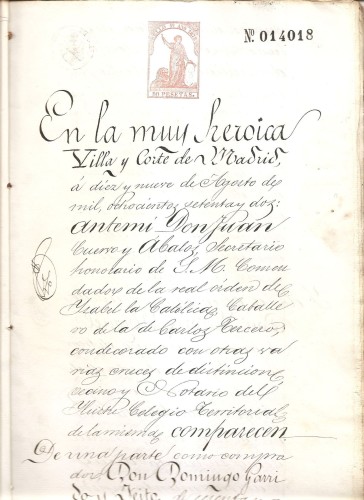 No. 014018
50 PESETAS.
En la muy heroica
Villa y Corte de Madrid,
á diez y nueve de Agosto de
mil, ochocientos setenta y dos:
antemi Don Juan
Cuervo y Abalos, Secretario
honorario de S. M. Comen
dador de la real orden de
Ysabel la Católica, Caballe
ro de la de Carlos Tercero,
condecorado con otras va
rias cruces de distincion
vecino y Notario del
Ylustre Colegio Territorial
de la misma, comparecen
De una parte como compra
dor, Don Domingo Garri
do y